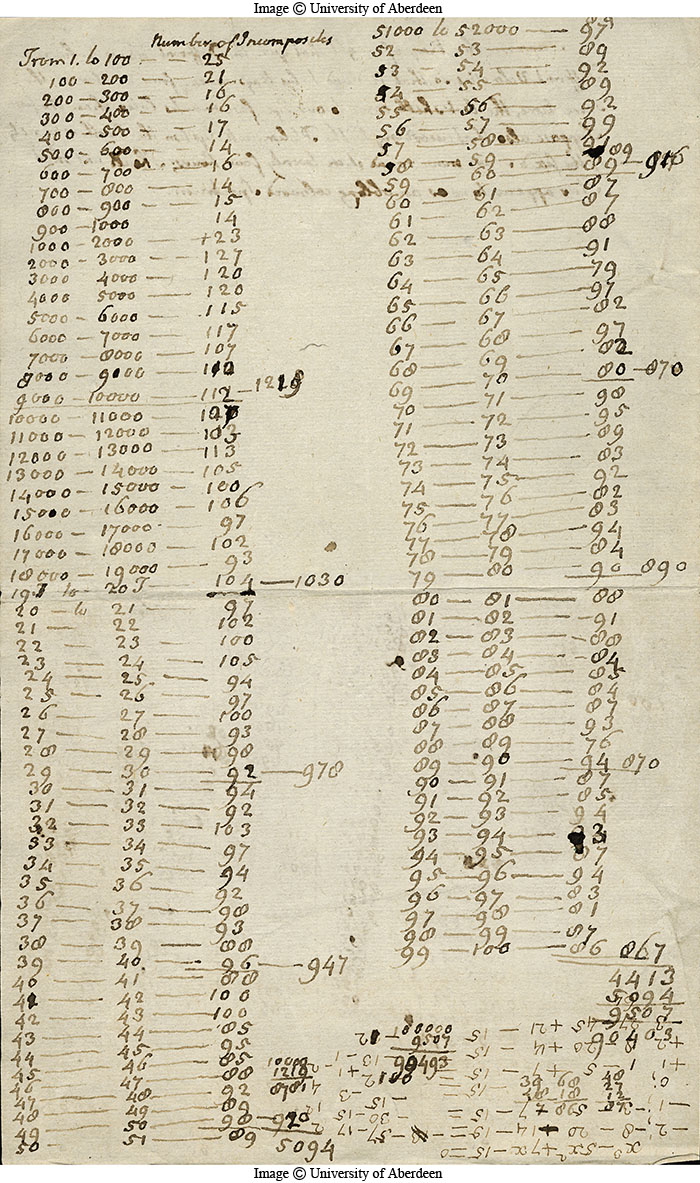 Number of Incomposits
From 1. to 100 — 25
100 — 200 — 21
200 — 300 — 16
300 — 400 — 16
400 — 500 — 17
500 — 600 — 14
600 — 700 — 16
700 — 800 — 14
800 — 900 — 15
900 — 1000 — 14
1000 — 2000 —
2000 — 3000 — 127
3000 4000 — 120
4000 5000 — 120
5000 — 6000 — 115
6000 — 7000 — 117
7000 — 8000 — 107
8000 — 9000 —
9000 — 10000 — 112 — 1219
10000 — 11000 —
11000 — 12000 — 103
12000 — 13000 — 113
13000 — 14000 — 105
14000 — 15000 — 100
15000 — 16000 — 106
16000 — 17000 — 97
17000 — 18000 — 102
18000 — 19000 — 93
19T to 20T — 104 — 1030
20 — to 21 — 97
21 — 22 — 102
22 — 23 — 100
23 — 24 — 105
24 — 25 — 94
25 — 26 — 97
26 — 27 — 100
27 — 28 — 93
28 — 29 — 98
29 — 30 — 92 — 978
30 — 31 — 94
31 — 32 — 92
32 — 33 — 103
33 — 34 — 97
34 — 35 — 94
35 — 36 — 92
36 — 37 — 98
37 — 38 — 93
38 — 39 — 88
39 — 40 — 96 — 947
40 — 41 — 88
41 — 42 — 100
42 — 43 — 100
43 — 44 — 85
44 — 45 — 95
45 — 46 — 85
46 — 47
47 — 48 — 92
48 — 49 — 89
49 — 50 — 98 — 920
50 — 51 — 89
5094
51000 to 52000 — 97
52 — 53 — 89
53 — 54 — 92
54 — 55 — 89
55 — 56 — 92
56 — 57 — 99
57 — 58 — 91
58 — 59 — 89
59 — 60 — 89
60 — 61 — 87
61 — 62 — 87
62 — 63 — 88
63 — 64 — 91
64 — 65 — 79
65 — 66 — 97
66 — 67 — 82
67 — 68 — 97
68 — 69 — 82
69 — 70 — 80 — 870
70 — 71 — 98
71 — 72 — 95
72 — 73 — 89
73 — 74 — 83
74 — 75 — 92
75 — 76 — 82
76 — 77 — 83
77 — 78 — 94
78 — 79 — 84
79 — 80 — 90 — 890
80 — 81 — 88
81 — 82 — 91
82 — 83 — 88
83 — 84 — 84
84 — 85 — 85
85 — 86 — 84
86 — 87 — 87
87 — 88 — 93
88 — 89 — 76
89 — 90 — 94 870
90 — 91 — 87
91 — 92 — 85
92 — 93 — 94
93 — 94 —
94 — 95 — 87
95 — 96 — 94
96 — 97 — 83
97 — 98 — 81
98 — 99 — 87
99 — 100 — 86 867
4413
5094
9507
100000
9507
90493
10000
1219
8781
x³ - 5x² + 7x - 15 = 0
Image © University of Aberdeen
Image © University of Aberdeen